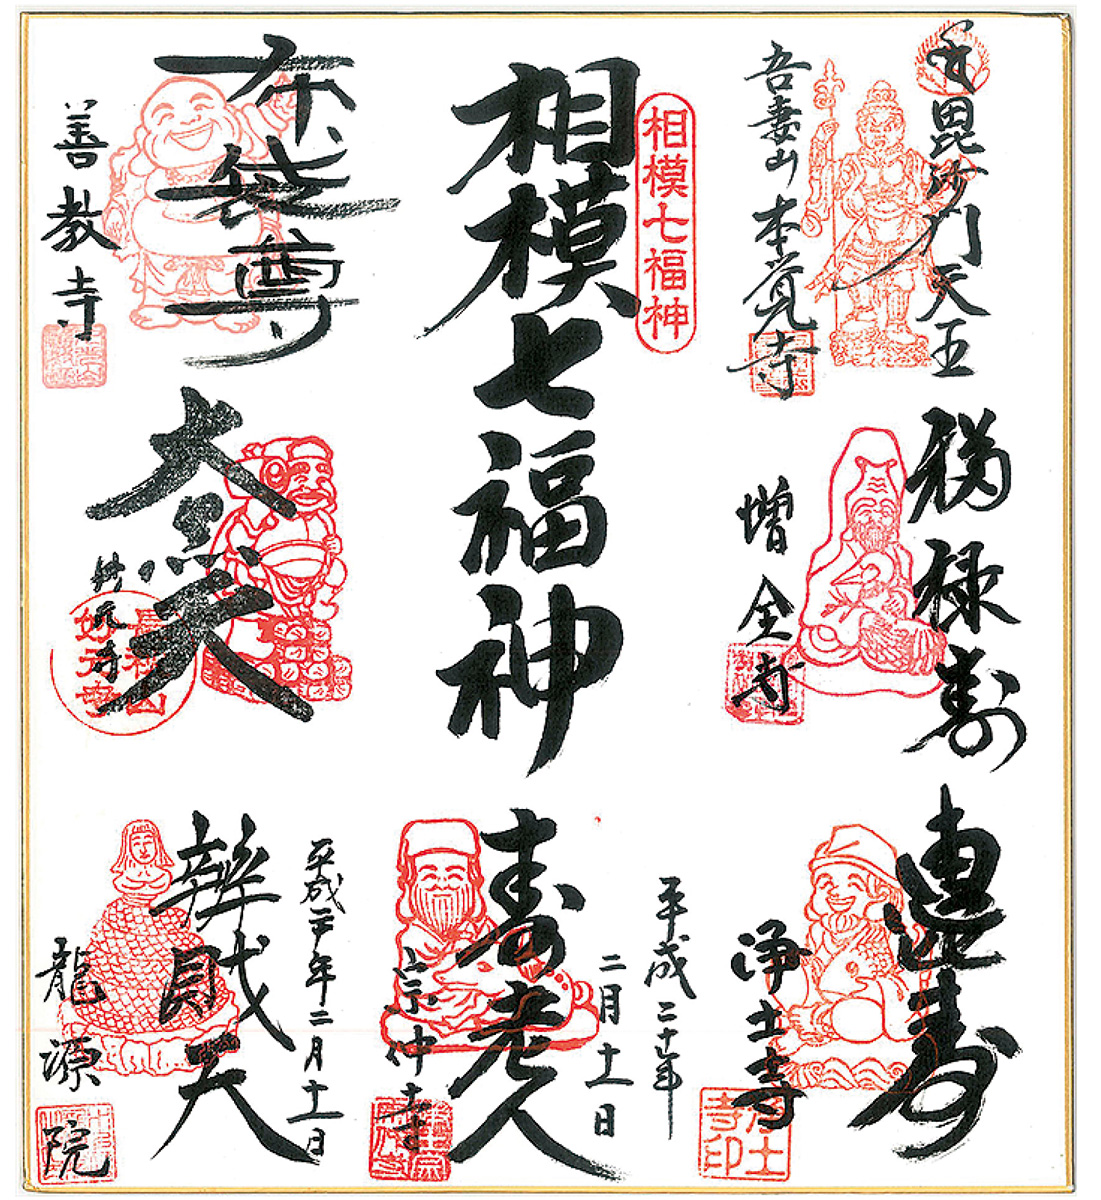 毘沙門天王
吾妻山 本覚寺
相模七福神
相模七福神
布袋尊
善教寺
福禄寿
増全寺
大黒天
妙元寺
長松山
妙元寺
恵比寿
浄土寺
浄土寺印
平成二十年
二月十一日
寿老人
宗仲寺
平成二十年二月十一日
辨財天
龍源院